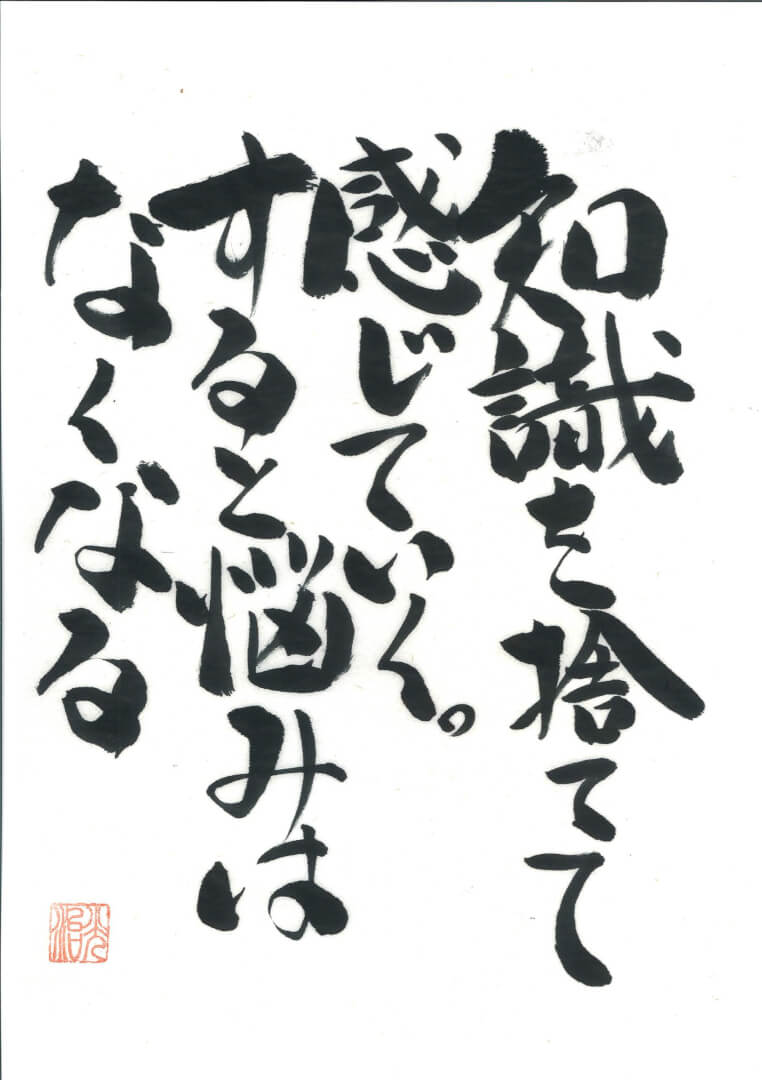 知識を捨てて
感じていく。
すると悩みは
なくなる